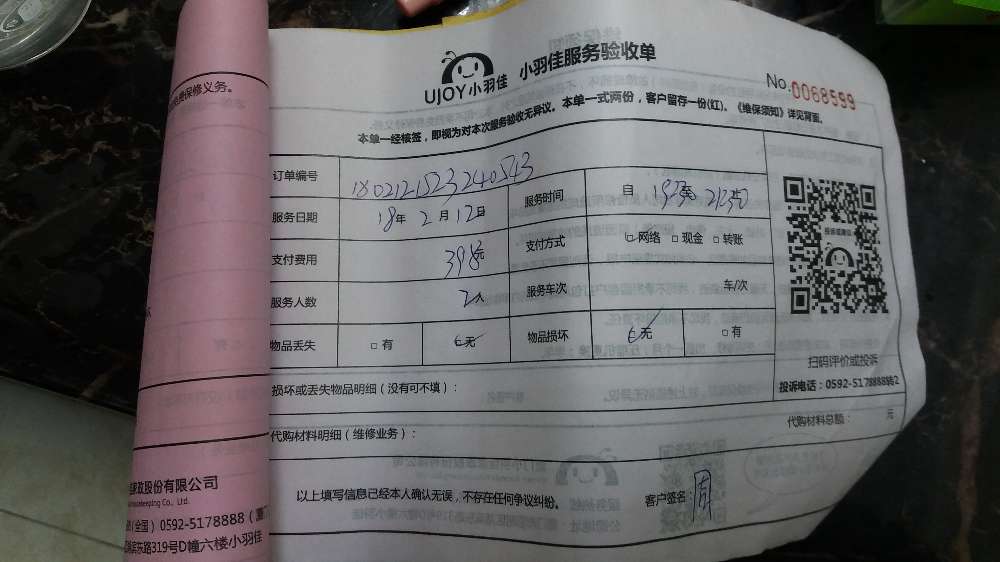 免费保修义务。
UJOY小羽佳
小羽佳服务验收单
No.0068599
本单一经核签，即视为对本次服务验收无异议。本单一式两份，客户留存一份(红)。《维保须知》详见背面。
订单编号 1802121523240543
服务时间 自 至
服务日期 18年 2月 12日
支付费用 398元
支付方式 网络 现金 转账
服务人数 2人
服务车次 车/次
物品丢失 有 无
物品损坏 无 有
扫码评价或投诉
投诉电话：0592-5178888转2
损坏或丢失物品明细（没有可不填）：
代购材料明细（维修业务）：
代购材料总额： 元
以上填写信息已经本人确认无误，不存在任何争议纠纷。
客户签名：
家政股份有限公司
Housekeeping Co., Ltd.
(全国) 0592-5178888 (厦
滨东路319号D幢六楼小羽佳